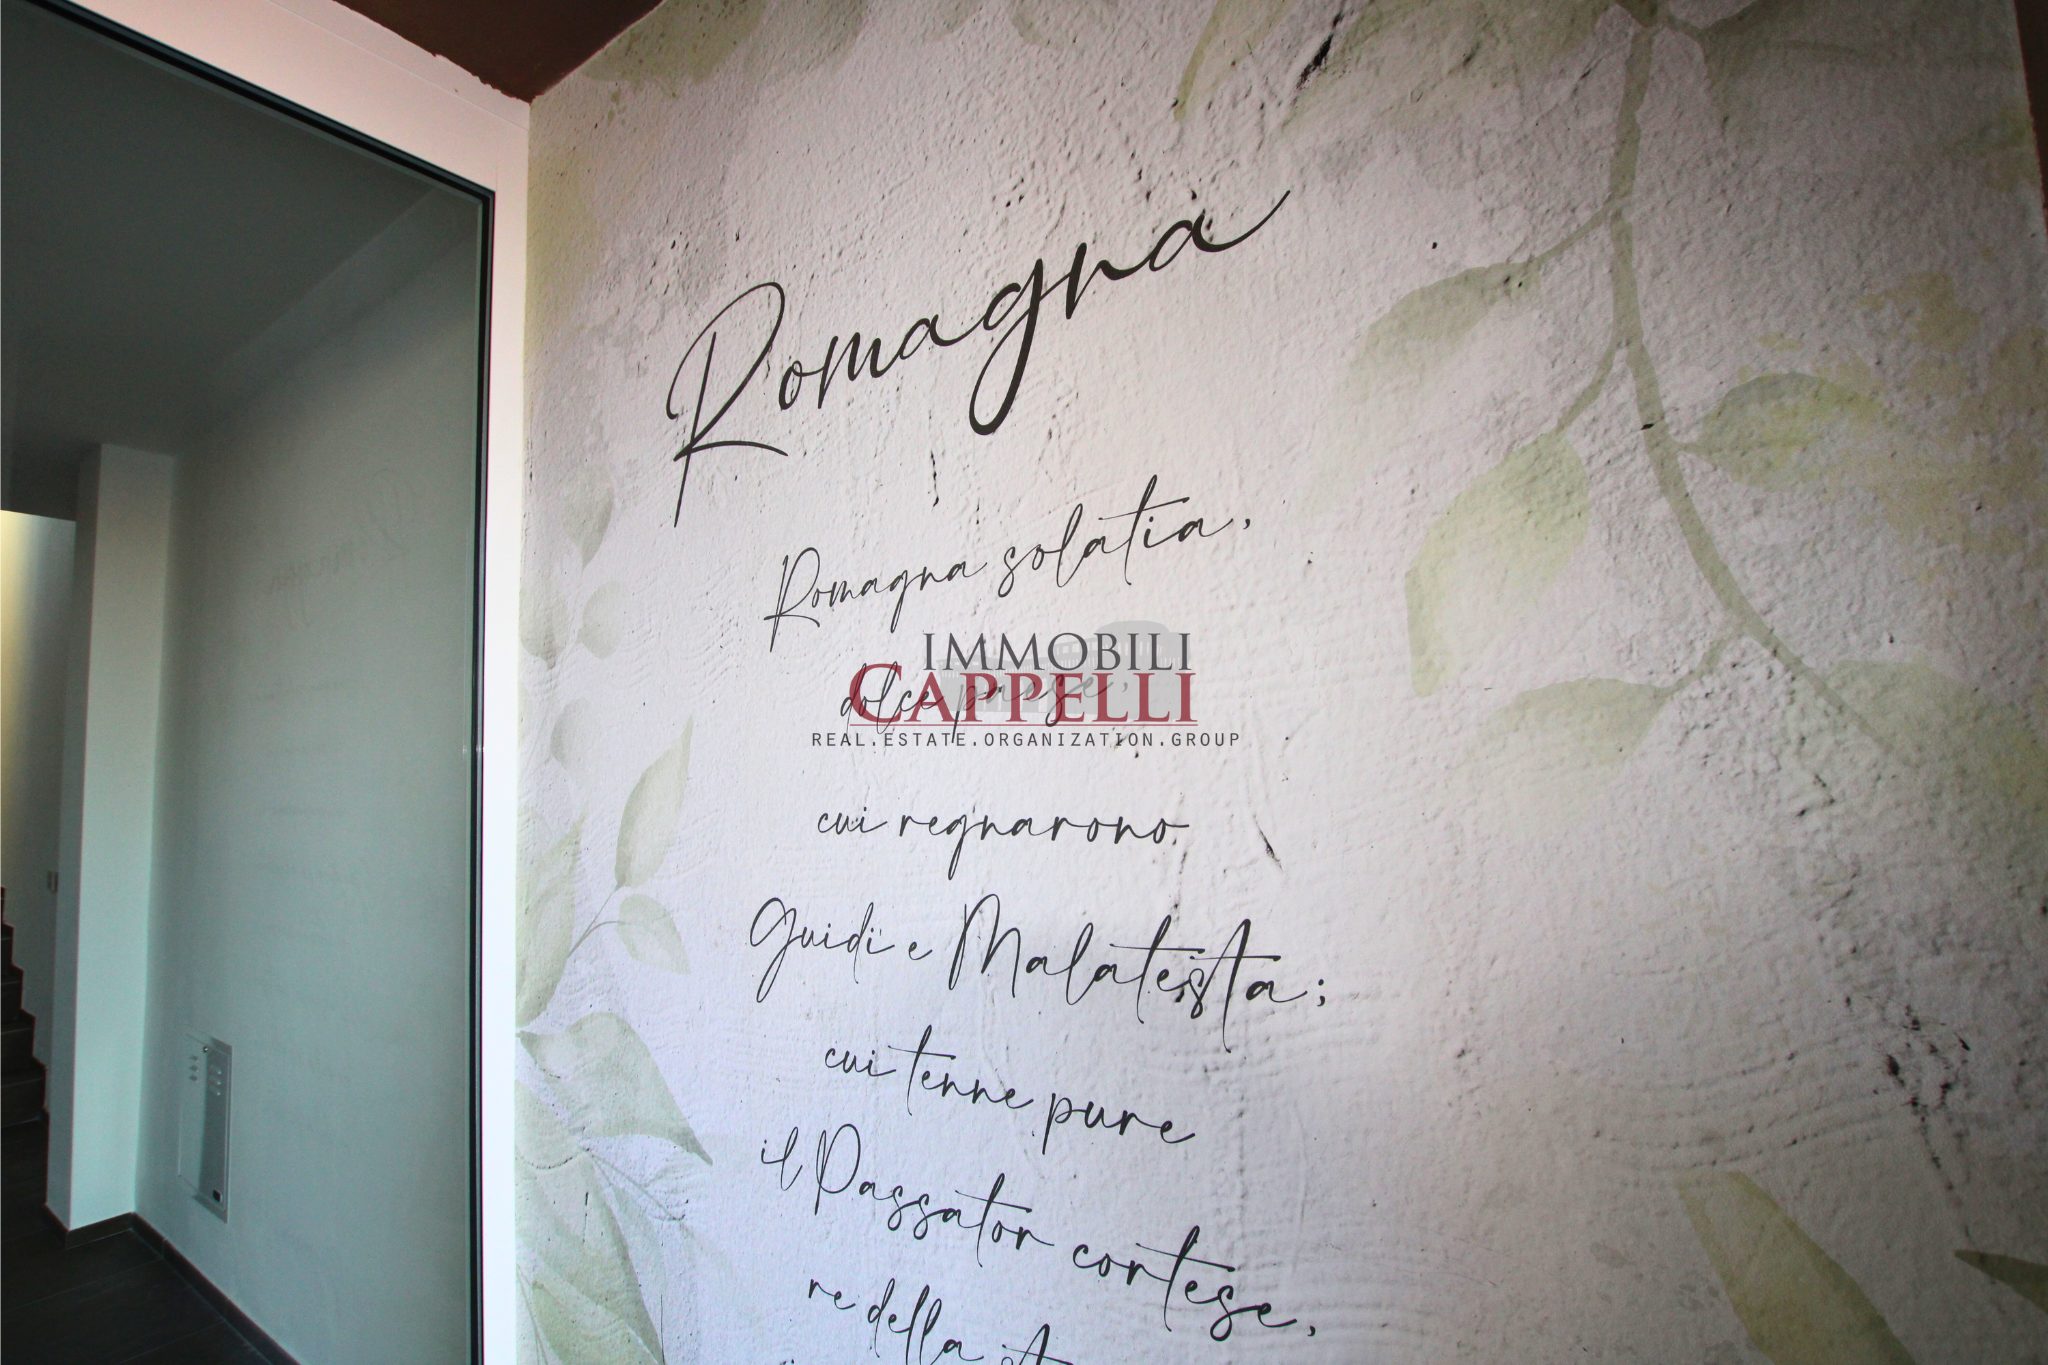 Romagna
Romagna solatia,
dolce paese,
IMMOBILI
CAPPELLI
REAL.ESTATE.ORGANIZATION.GROUP
cui regnarono
Guidi e Malatesta;
cui tenne pure
il Passator cortese,
re della